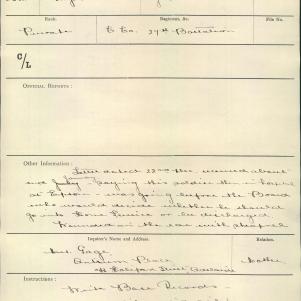 Rank.
Regiment, &c.
File No.
Private
E Co. 27th Battalion
C/L
Official Reports:
Other Information:
Letter dated 22nd Dec. received about
2nd saying this soldier was in hospital
at Epsom - was going before the Board
who would decide whether he should
go into Home Service or be discharged.
Wounded in the
Inquirer's Name and Address.
Relation.
Mrs. Gage
Place
Halifax Street Adelaide
Mother
Instructions:
Write Base Records -